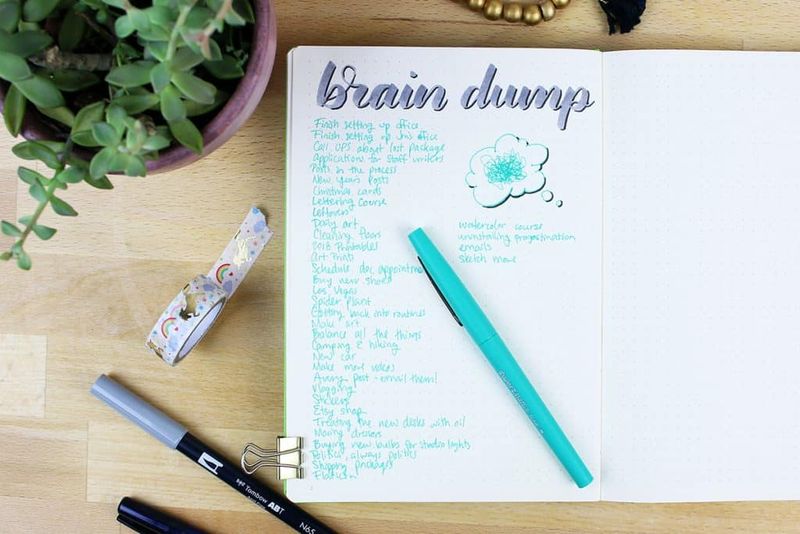 brain dump
Finish setting up office
Finish setting up Jm's office
Call UPS about lost package
Applications for staff writers
Posts in the process
New Years Posts
Christmas cards
Lettering Course
Leftovers
Daily art
Cleaning floors
2018 Printables
Art Prints
Schedule doc appointme
Buy new shoes
Las Vegas
Spider plant
Getting back into routines
Make art
Balance all the things
Camping & hiking
New car
Make more videos
post - email them!
Vlogging
Stickers
Etsy shop
Treating the new desks with oil
Moving dressers
Buying new bulbs for studio lights
Politics, always politics
Shipping packages
watercolor course
uninstalling
emails
sketch more
Tombow ABT
N65